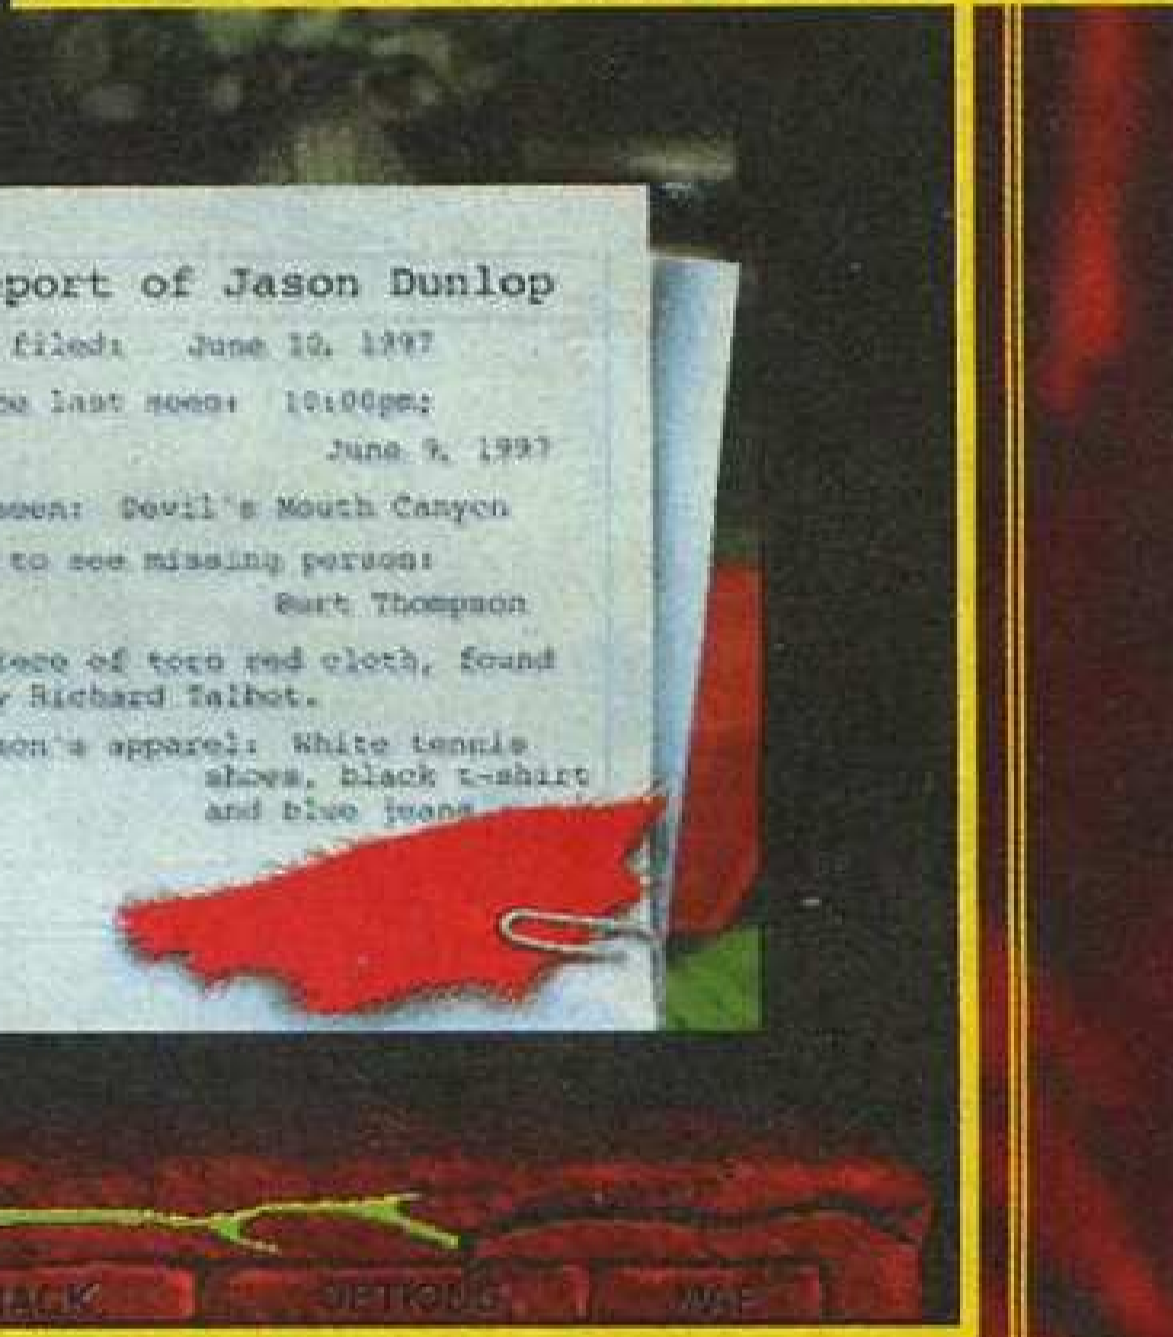 port of Jason Dunlop
filed: June 10, 1997
last seen: 10:00pm;
June 9, 1997
seen: Devil's Mouth Canyon
to see missing person:
Burt Thompson
iece of torn red cloth, found
y Richard Talbot.
son's apparel: White tennis
shoes, black t-shirt
and blue jeans
ACK OPTIONS MAP